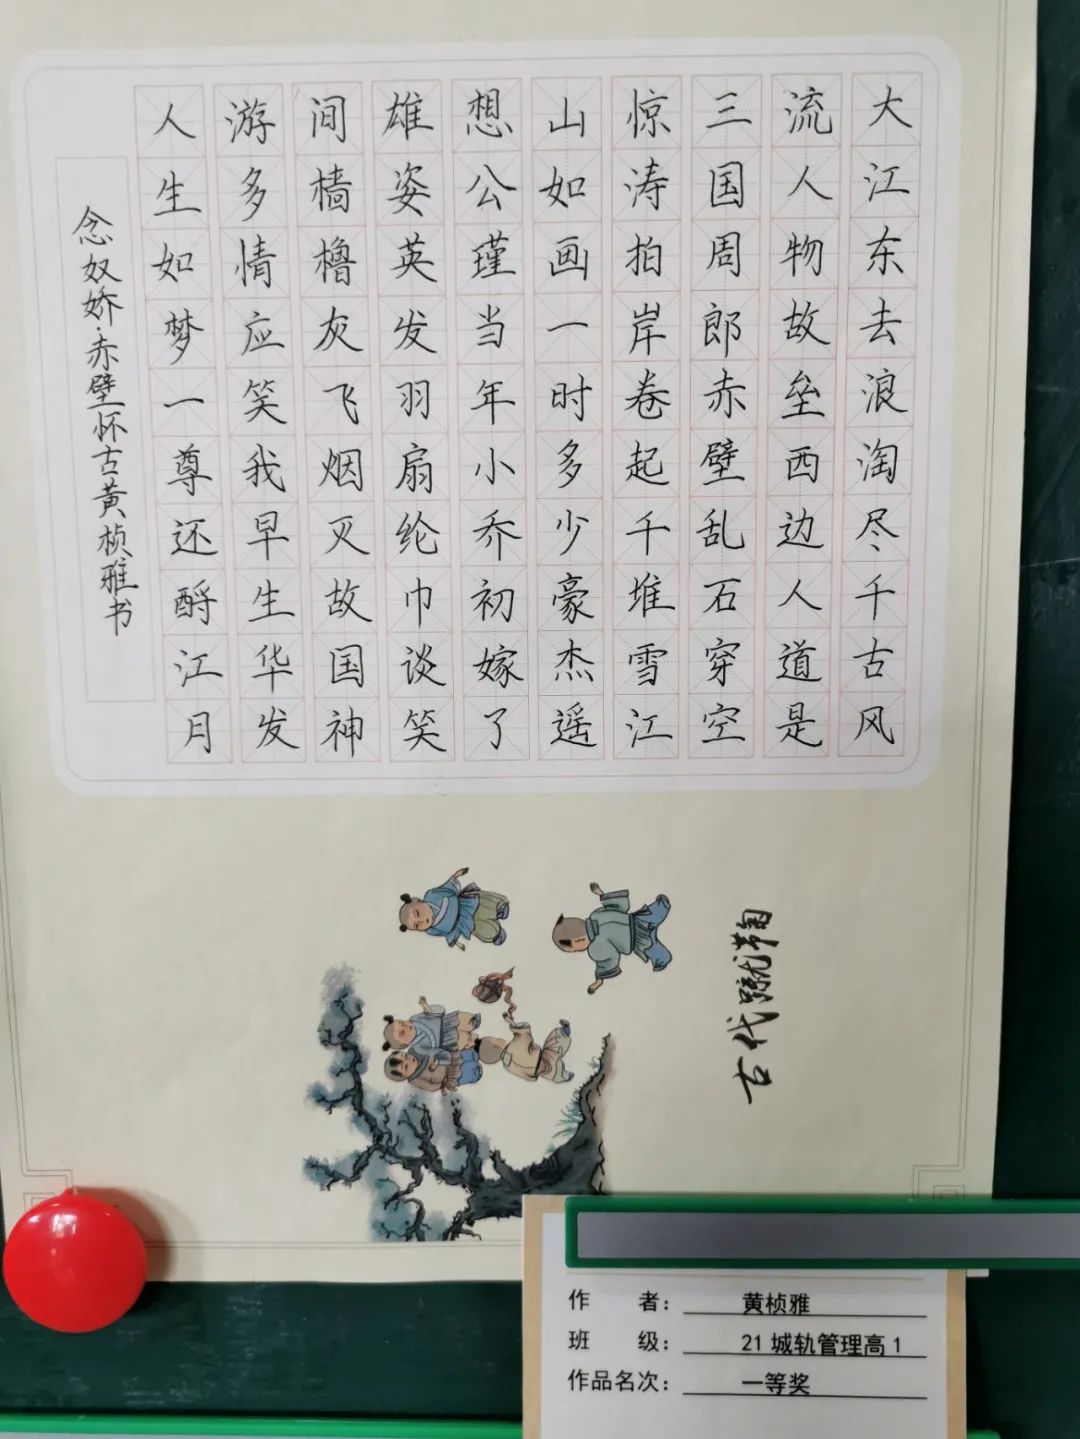 大江东去浪淘尽千古风
流人物故垒西边人道是
三国周郎赤壁乱石穿空
惊涛拍岸卷起千堆雪江
山如画一时多少豪杰遥
想公瑾当年小乔初嫁了
雄姿英发羽扇纶巾谈笑
间樯橹灰飞烟灭故国神
游多情应笑我早生华发
人生如梦一尊还酹江月
念奴娇·赤壁怀古黄桢雅书
古代蹴鞠
作 者：黄桢雅
班 级：21城轨管理高1
作品名次：一等奖